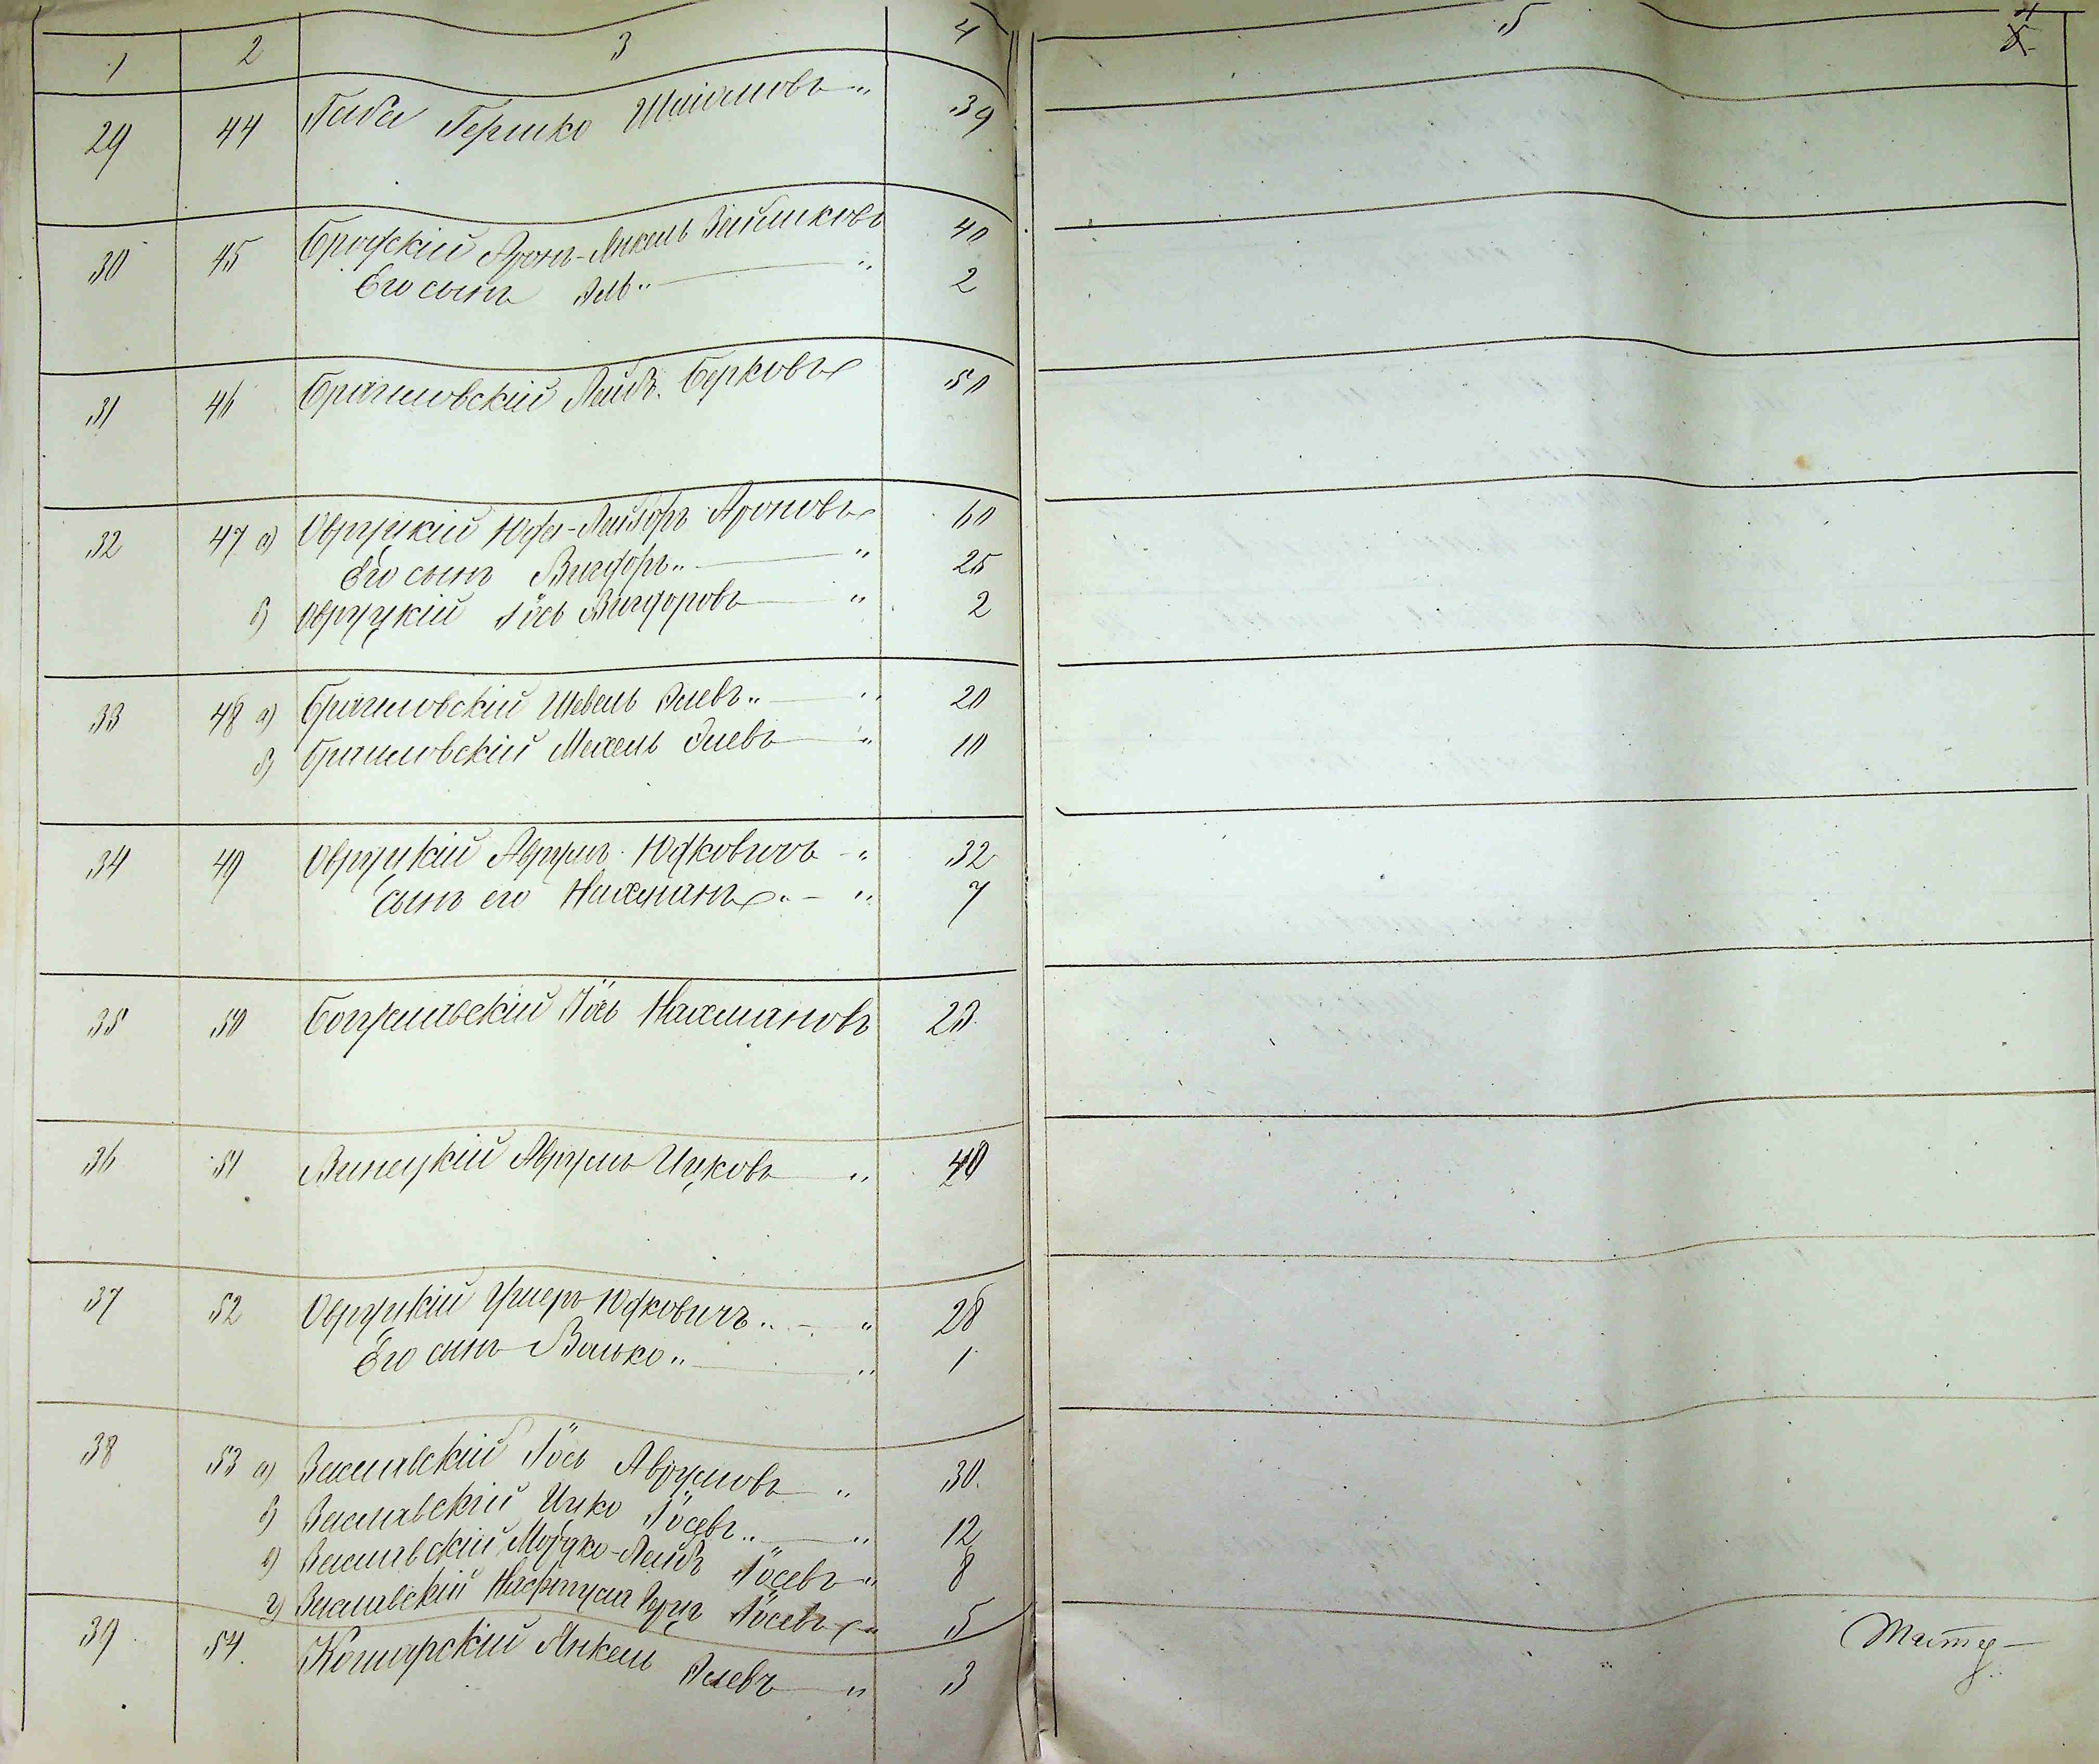 1 2 3 4 5
29 44 Гершко 39
30 45 Бродскій Аронъ-Янкель 40
Его сынъ 2
31 46 Брагиловскій Лейбъ Берковъ 50
32 47 а) Овруцкій Юда-Лейзоръ Ароновъ 60
Его сынъ Вигдоръ 25
б) Овруцкій Іось Вигдоровъ 2
33 48 а) Брагиловскій Шевель Элевъ 20
б) Брагиловскій Мехель Элевъ 10
34 49 Овруцкій Аврумъ Юдковичъ 32
сынъ его Нахманъ 7
35 50 Богуславскій Іось Нахмановъ 23
36 51 Винецкій Аврумъ Ицковъ 40
37 52 Овруцкій Ушеръ Юдковичъ 28
Его сынъ Волько 1
38 53 а) Заславскій Іось Аврумовъ 30
б) Заславскій Ицко Іосевъ 12
в) Заславскій Мордко-Лейбъ Іосевъ 8
г) Заславскій Нафтула Іосевъ 5
39 54 Комарскій Янкель Элевъ 3